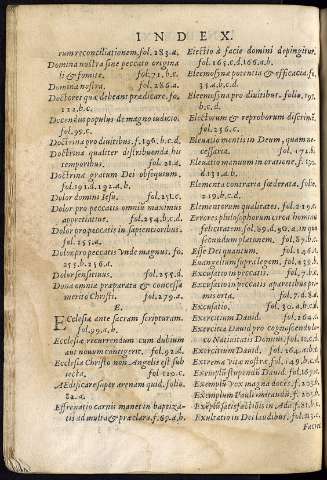 INDEX.
rum reconciliationem, fol. 283. a.
Domina nostra sine peccato origina
li & fomite. fol. 71. b. c.
Domina nostra. fol. 286. a.
Doctores quæ debeant prædicare. fo.
122. b. c.
Docendus populus de magno iudicio.
fol. 95. c.
Doctrina pro diuitibus. f. 196. b. c. d.
Doctrina qualiter distribuenda hu
temporibus. fol. 21. a.
Doctrina gratum Dei obsequium.
fol. 191. d. 192. a. b.
Dolor domini Iesu. fol. 251. c.
Dolor pro peccatis omnium maximus
appretiatiue. fol. 254. b. c. d.
Dolor pro peccatis in sapientioribus.
fol. 255. a.
Dolor pro peccatis vnde magnus. fo.
255. b. 256. a.
Dolor sensitiuus. fol. 255. d.
Dona omnia præparata & concessa
merito Christi. fol. 279. a.
E.
Ecclesia ante sacram scripturam.
fol. 99. a. b.
Ecclesia recurrendum cum dubium
aut nouum contigerit. fol. 92. d.
Ecclesia Christo non Angelis est sub
iecta. fol. 120. c.
Ædificare super arenam quid. folio.
82. a.
Effrenatio carnis manet in baptiza-
tis ad multa & præclara. f. 69. a. b.
Eiectio à facie domini depingitur.
fol. 165. c. d. 166. a. b.
Eleemosyna potentia & efficacia. fi.
35. a. b. c. d.
Eleemosyna pro diuitibus. folio. 195.
b. c. d.
Electorum & reproborum discrimē.
fol. 236. c.
Eleuatio mentis in Deum, quam ne
cessaria. fol. 172. b.
Eleuatio manuum in oratione. f. 172.
d. 131. a. b.
Elementa contraria fœderata. folio.
219. b. c. d.
Elementorum qualitates. fol. 219. a.
Errores philosophorum circa hominis
felicitatem. fol. 89. d. 90. a. in quo
secundum platonem. fol. 87. b.
Esse Dei quantum. fol. 146. a.
Euangelium superlegem. fol. 239. b.
Excusatio in peccatis. fol. 7. b. c.
Excusatio in peccatis aperibus pri-
mis erta. fol. 7. d. 8. a.
Excusatio. fol. 30. a. b. c. d.
Exercitia Dauid. fol. 264. a.
Exercitia Dauid pro cognoscendo lo-
co Natiuitatis Domini. fol. 12. d.
Exercitia Dauid. fol. 264. a. b. c.
Extrema vita nostra. fol. 149. b. c. d.
Exemplū stupendū Dauid. fol. 169. c.
Exemplū vox magna docēs. f. 203. b.
Exemplum Pauli mirandū. f. 203. b.
Exēplū satisfactiōis in Ada. f. 81. b. c.
Exultatio in Dei laudibus. fol. 113. c.
Facie